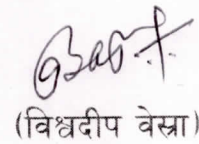 (विश्वदीप वेस्रा)